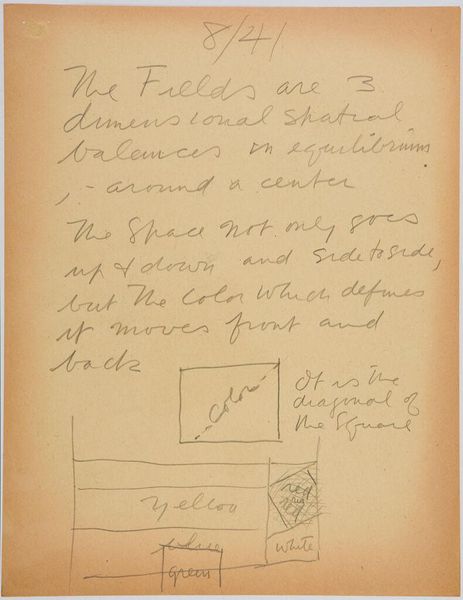 8/41
The Fields are 3
dimensional spatial
balances in equilibrium
, - around a center
The Space not only goes
up & down and side to side,
but The Color which defines
it moves front and
back
Color
It is the
diagonal of
the Square
yellow
red
red
white
green